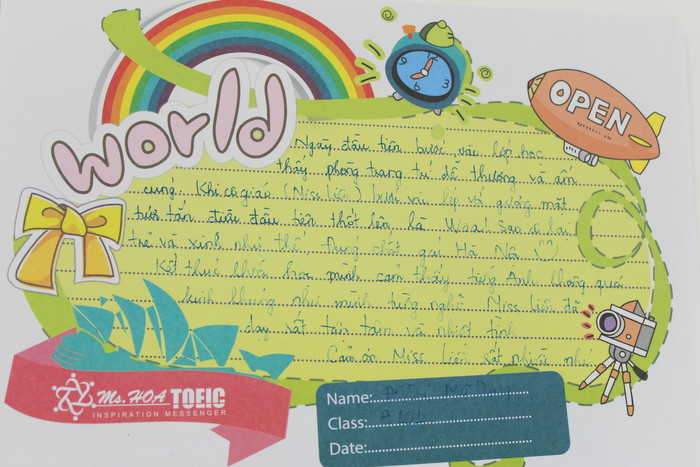 world
OPEN
Ngày đầu tiên bước vào lớp học
thấy phòng trang trí dễ thương và ấm
cúng. Khi cô giáo (Miss Liên) bước vào lớp với gương mặt
tươi tắn điều đầu tiên thốt lên là Woa! Sao cô lại
trẻ và xinh như thế, đúng chất gái Hà Nội
Kết thúc khoá học mình cảm thấy tiếng Anh không quá
kinh khủng như mình từng nghĩ Miss Liên đã
dạy rất tận tâm và nhiệt tình
Cảm ơn Miss Liên rất nhiều nhé
Ms. HOA TOEIC
INSPIRATION MESSENGER
Name:
Class:
Date: